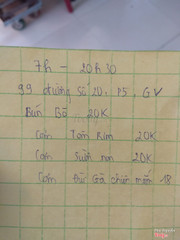 7h – 20h30
99 đường Số 20, P5, GV
Bún Gà .. 20K
Cơm Tấm Bim 20K
Cơm Sườn non 20K
Cơm Đùi Gà chiên mắm 18